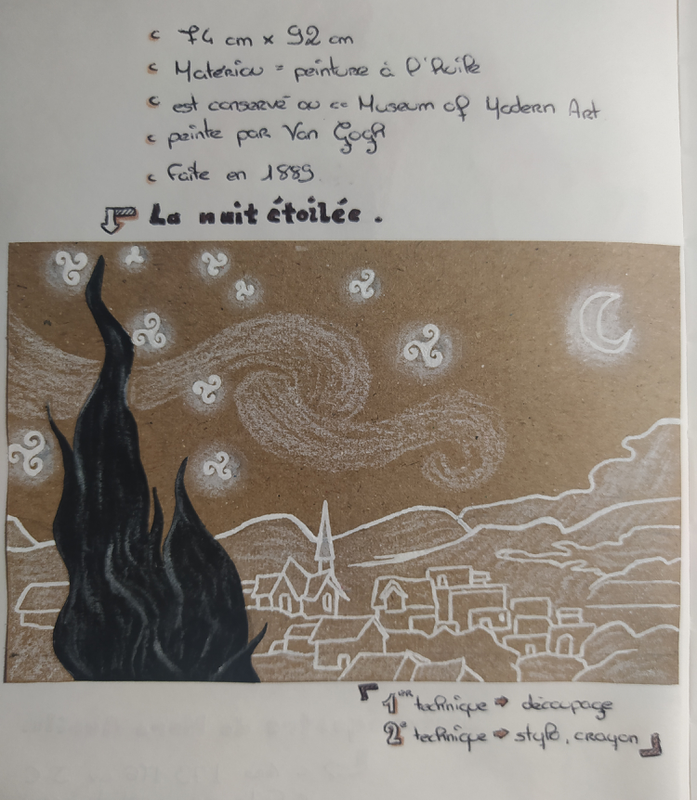 74 cm x 92 cm
Matériau = peinture à l'huile
est conservé au Museum of Modern Art
peinte par Van Gogh
Faite en 1889.
La nuit étoilée.
1ère technique ➡ découpage
2e technique ➡ stylo, crayon